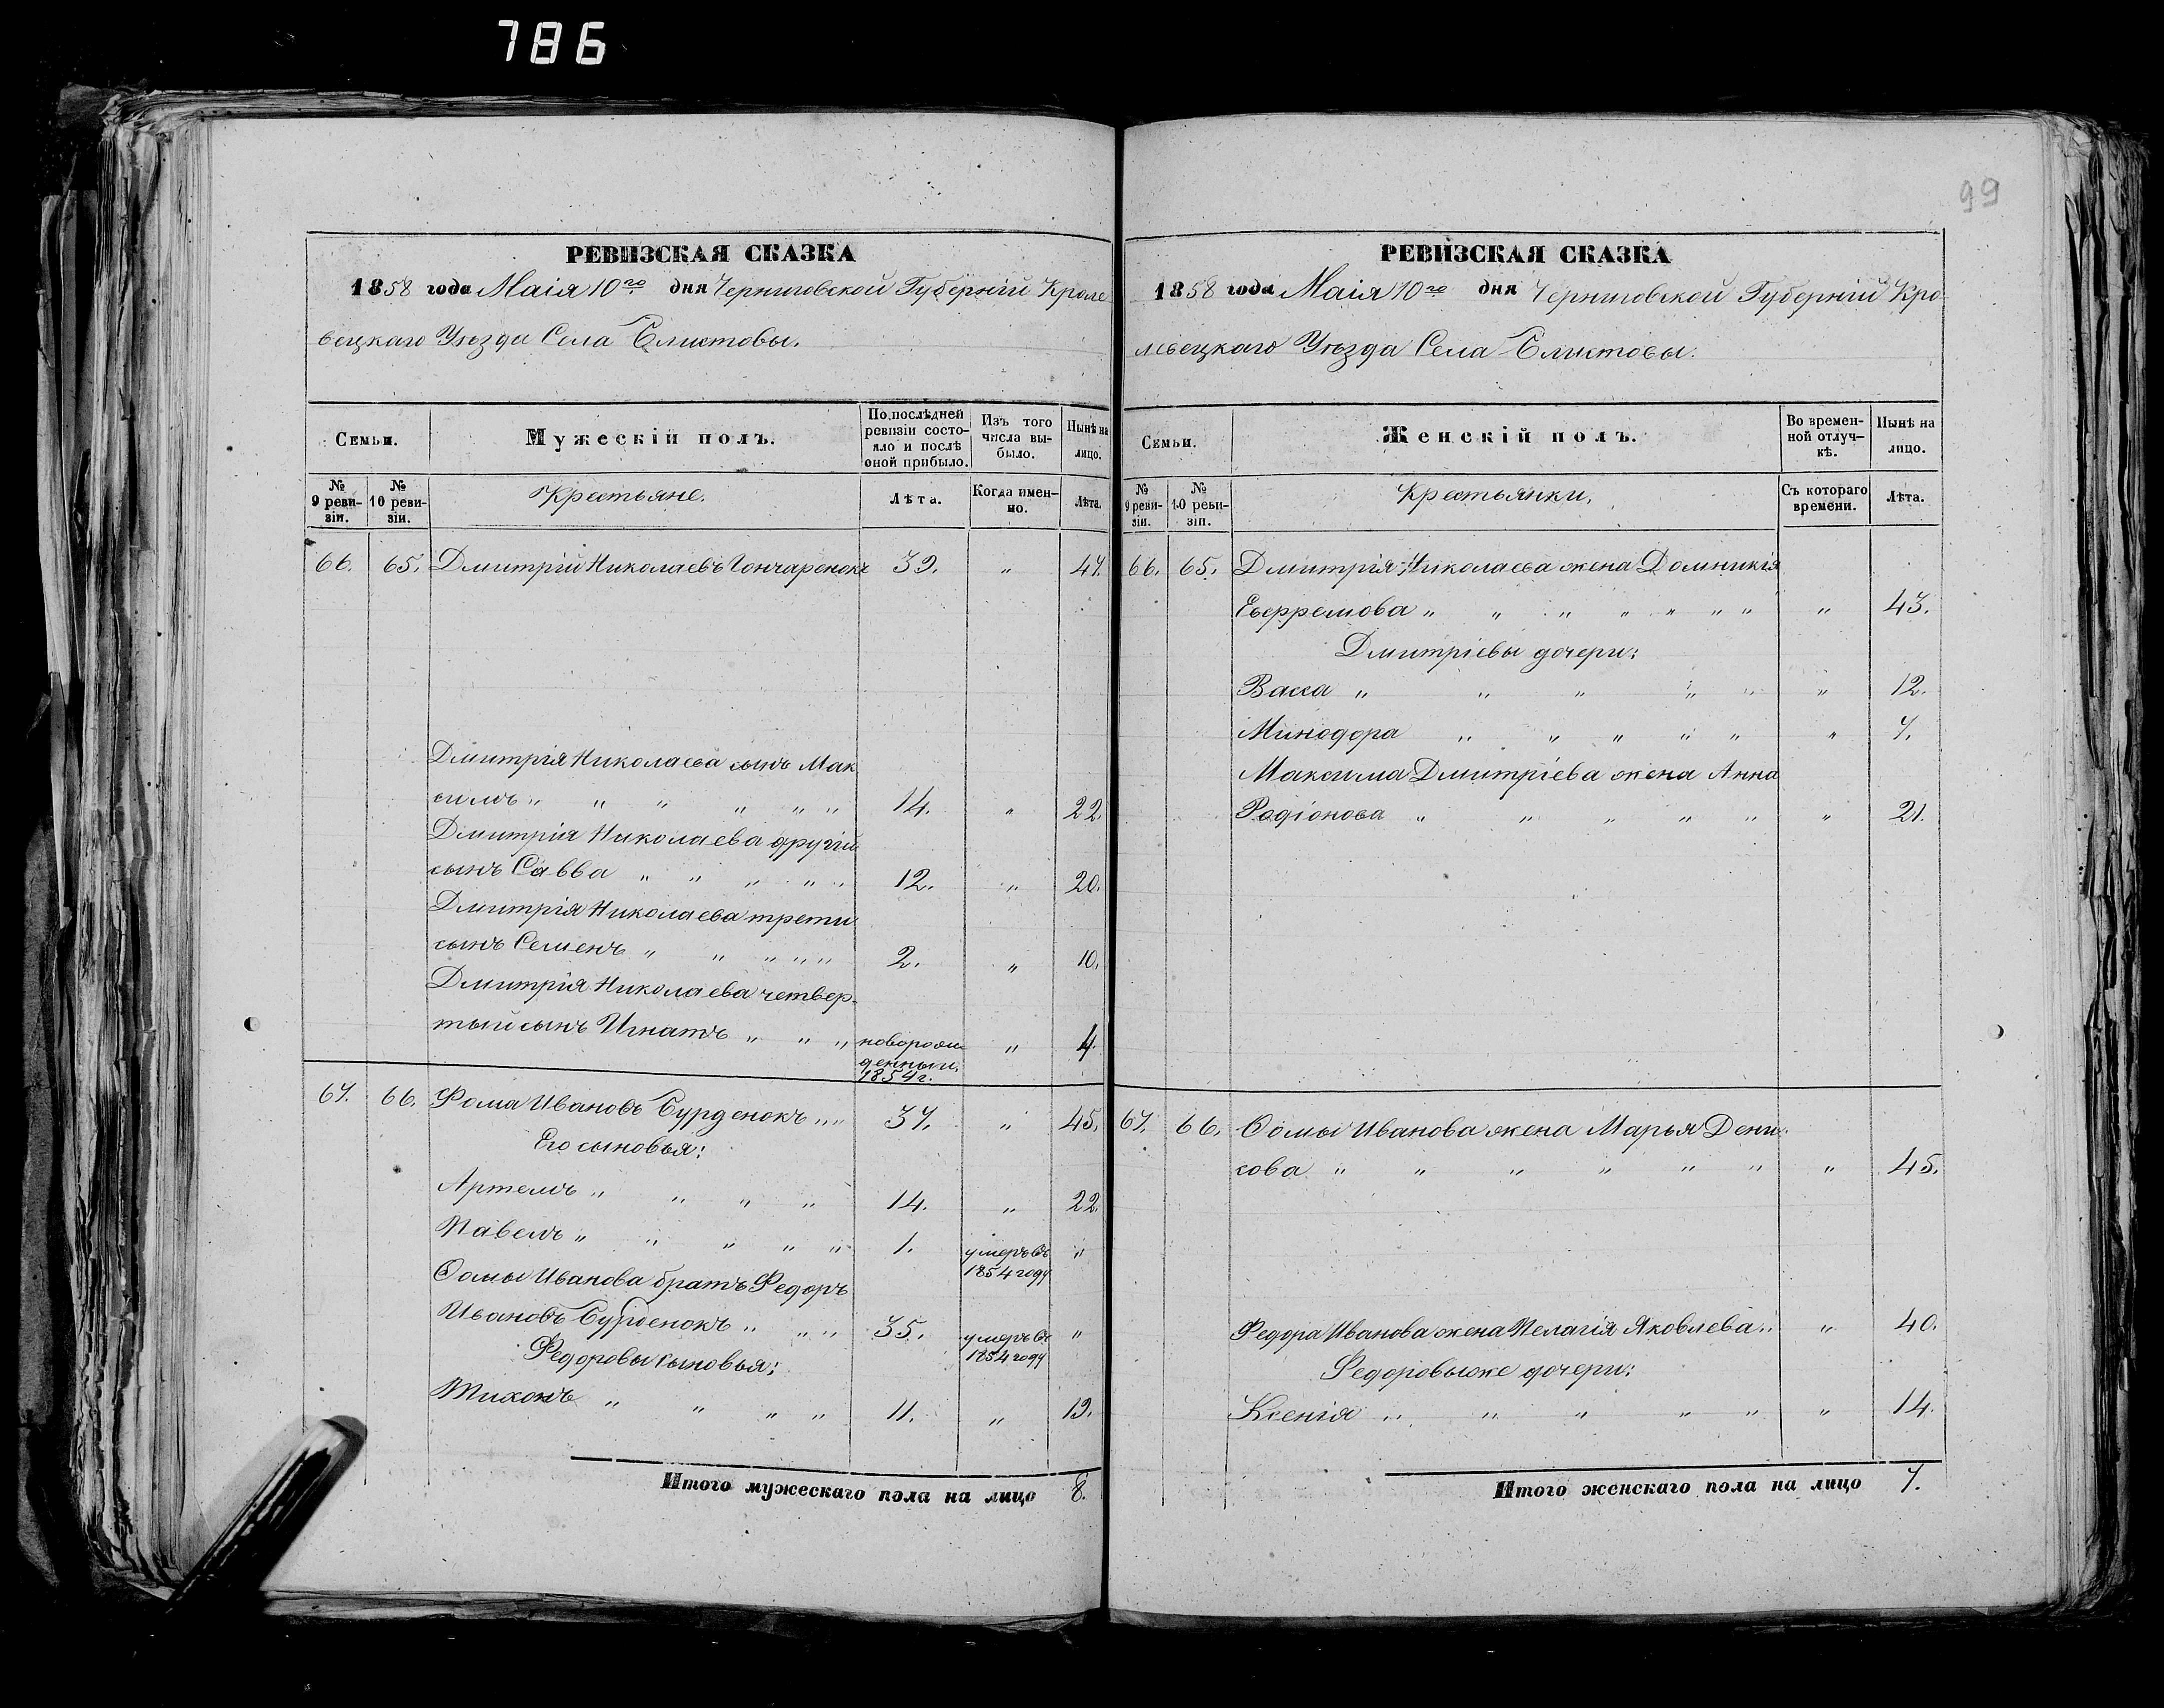 786
99
РЕВИЗСКАЯ СКАЗКА
1858 года Маія 10го дня Черниговской Губерніи Кроле
вецкаго Уѣзда Села Блистовы.
Семьи.
Мужескій полъ.
По послѣдней ревизіи состояло и послѣ оной прибыло.
Изъ того числа выбыло.
Нынѣ на лицо.
№ 9 ревизіи.
№ 10 ревизіи.
Крестьяне.
Лѣта.
Когда именно.
Лѣта.
66. 65. Дмитрій Николаевъ Гончаренокъ 39. " 47.
Дмитрія Николаева сынъ Мак
симъ " " " " " " 14. " 22.
Дмитрія Николаева другій
сынъ Савва " " " " " 12. " 20.
Дмитрія Николаева трети
сынъ Семенъ " " " " " 2. " 10.
Дмитрія Николаева четвер-
тый сынъ Игнатъ " " " новорожденный 1854 г. " 4.
67. 66. Фома Ивановъ Бурденокъ " " 37. " 45.
Его сыновья:
Артемъ " " " " 14. " 22.
Павелъ " " " " " 1. умеръ въ 1854 году "
Ѳомы Иванова братъ Федоръ
Ивановъ Бурденокъ " " " 35. умеръ въ 1854 году "
Федоровы сыновья:
Тихонъ " " " " 11. " 19.
Итого мужескаго пола на лицо 8.
РЕВИЗСКАЯ СКАЗКА
1858 года Маія 10го дня Черниговской Губерніи Кро
левецкаго Уѣзда Села Блистовы.
Семьи.
Женскій полъ.
Во временной отлучкѣ.
Нынѣ на лицо.
№ 9 ревизіи.
№ 10 ревизіи.
Крестьянки.
Съ котораго времени.
Лѣта.
66. 65. Дмитрія Николаева жена Домникія
Евфремова " " " " " " " " 43.
Дмитріевы дочери:
Васса " " " " " " 12.
Минодора " " " " " " 7.
Максима Дмитріева жена Анна
Родіонова " " " " " " 21.
67. 66. Ѳомы Иванова жена Марья Дени-
сова " " " " " " " 45.
Федора Иванова жена Пелагія Яковлева " " 40.
Федоровыже дочери:
Ксенія " " " " " " 14.
Итого женскаго пола на лицо 7.